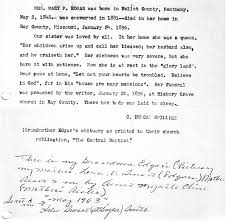 MRS. MARY P. EDGAR was born in Daliot County, Kentucky,
May 2, 1840.--was converted in 1881--died in her home in
Ray County, Missouri, January 24, 1896.
Our sister was loved by all. In her home she was a queen.
"Her children arise up and call her blessed; her husband also,
and he praiseth her." Her sickness was very severe, but she
bore it with patience. Now she is at rest in the "glory land".
Dear ones at home, "Let not your hearts be troubled. Believe
in God", for in His "house are many mansions". Her Funeral
was preached by the writer, January 26, 1896, at Hickory Grove
church in Ray County. There her body was laid to sleep.
C. DUCAN SPILLMAN
(Grandmother Edgar's obituary as printed in their church
publication, "The Central Baptist"
This is my Grandma Edgar's Obituary,
my married Lena
sent me by Aunt Myrtle Cline
Sent in May 1963
Smith